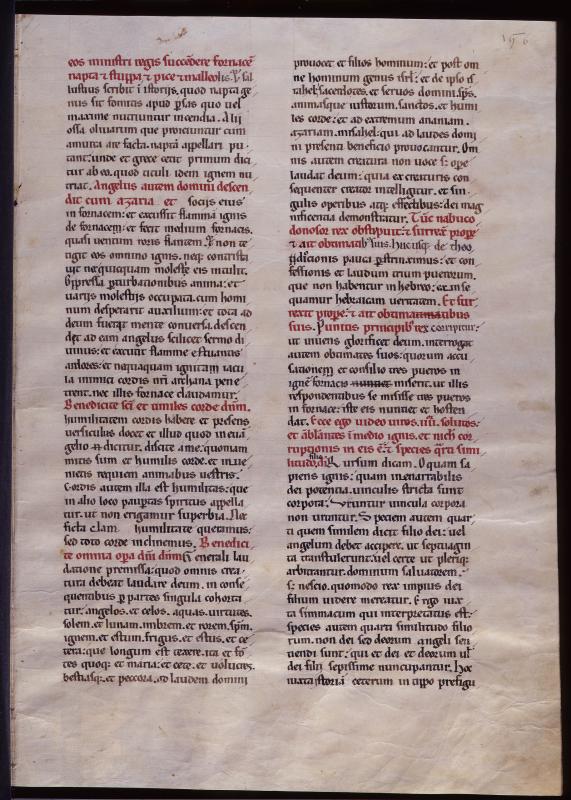 eos ministri regis succedere fornacē
napta ⁊ stuppa ⁊ pice ⁊ malleolis. Sal
lustius scribit ī istorijs. quod napta ge
nus sit fomitis apud psas quo uel
maxime nutriuntur incendia. Alij
ossa oliuarum que proiciuntur cum
amurca are facta. napta appellari pu
tant. unde et grece dici
tur ab eo. quod id est ignem nu
triat. Angelus autem domini descen
dit cum azaria et socijs eius
in fornacem: et excussit flammā ignis
de fornacem: et fecit medium fornacis.
quasi uentum roris flantem. ⁊ non te
tigit eos omnino ignis. neqꝫ contrista
uit nec quicquam molestie eis intulit.
Oppressa pturbationibus anima: et
uarijs molestijs occupata. cum homi
num desperarit auxilium: et tota ad
deum fuerit mente conuersa. descen
dit ad eam angelus scilicet sermo di
uinus: et excutit flamme estuantis
ardores: et nequaquam ignitam iacu
la inimici cordis nr̄i archana pene
trent. nec illis fornace claudamur.
Benedicite sc̄i et humiles corde dn̄m.
humilitatem cordis habere et presens
uersiculus docet et illud quod in euā
gelio dicitur. discite a me: quoniam
mitis sum et humilis corde. et inue
nietis requiem animabus uestris.
Cordis autem illa est humilitas: que
in alio loco pauptas spiritus appella
tur. ut non erigamur superbia. Nec
ficta clam humilitate queramus:
sed toto corde inclinemus. Benedici
te omnia opa dn̄i dn̄m. Generali lau
datione premissa: quod omnis crea
tura debeat laudare deum. in conse
quentibus p partes singula cohorta
tur. angelos. et celos. aquas. uirtutes.
solem. et lunam. imbrem. et rorem. spm̄.
ignem. et estum. frigus. et estus. et ce
tera: que longum est texere. ita et fō
tes quoqꝫ et maria: et cete. et uolucres.
bestiasqꝫ. et peccora. ad laudem domini
prouocet et filios hominum: et post om
ne hominum genus isrl̄: et de ipso is
rahel. sacerdotes. et seruos domini. sp̄s.
animasque iustorum. sanctos. et humi
les corde: et ad extremum ananiam.
azariam. misahel: qui ad laudes domi
ni presenti beneficio prouocantur. Om
nis autem creatura non uoce s; ope
laudat deum: quia ex creaturis con
sequenter creator intelligitur. et sin
gulis operibus atqꝫ effectibus: dei mag
nificentia demonstratur. Tūc nabuco
donosor rex obstupuit: ⁊ surrex̄ prope
⁊ ait obtimatibꝫ suis. hucusqꝫ de theo
doticionis pauca pstrinximus: et con
fessionis et laudum trium puerorum.
que non habentur in hebreo: exinse
quamur hebraicam ueritatem. Et sur
rexit prope: ⁊ ait obtimatibus
suis. Puritus principibꝫ rex corripitur:
ut uiuens glorificet deum. interrogat
autem obtimates suos: quorum accu
sationem et consilio tres pueros in
ignē fornacis nuntiet miserit. ut illis
respondentibus se misisse tres pueros
in fornace: iste eis nuntiet et hosten
dat. Ecce ego uideo uiros. iiij. solutos:
et ābulantes ī medio ignis. et nich̄ cor
ruptionis in eis ē: ⁊ species qrti simi
lis filio dei. Rursum dicam. O quam sa
piens ignis: quam inenarrabilis
dei potentia. uinculis stricta sunt
corpora. Uruntur uincula corpora
non uruntur. Speciem autem quar
ti quem similem dicit filio dei: uel
angelum debet accipere. ut septuagin
ta transtulerunt. uel certe ut pleriqꝫ
arbitrantur. dominum saluatorem.
s; nescio. quomodo rex impius dei
filium uidere mereatur. Ergo iux
ta simmacum qui interpretatus est:
species autem quarti similitudo filio
rum. non dei sed deorum. angeli sen
tiendi sunt: qui et dei et deorum ul̄
dei filij sepissime nuncupantur. Hoc
iuxta istoriā ceterum in tippo prefigu